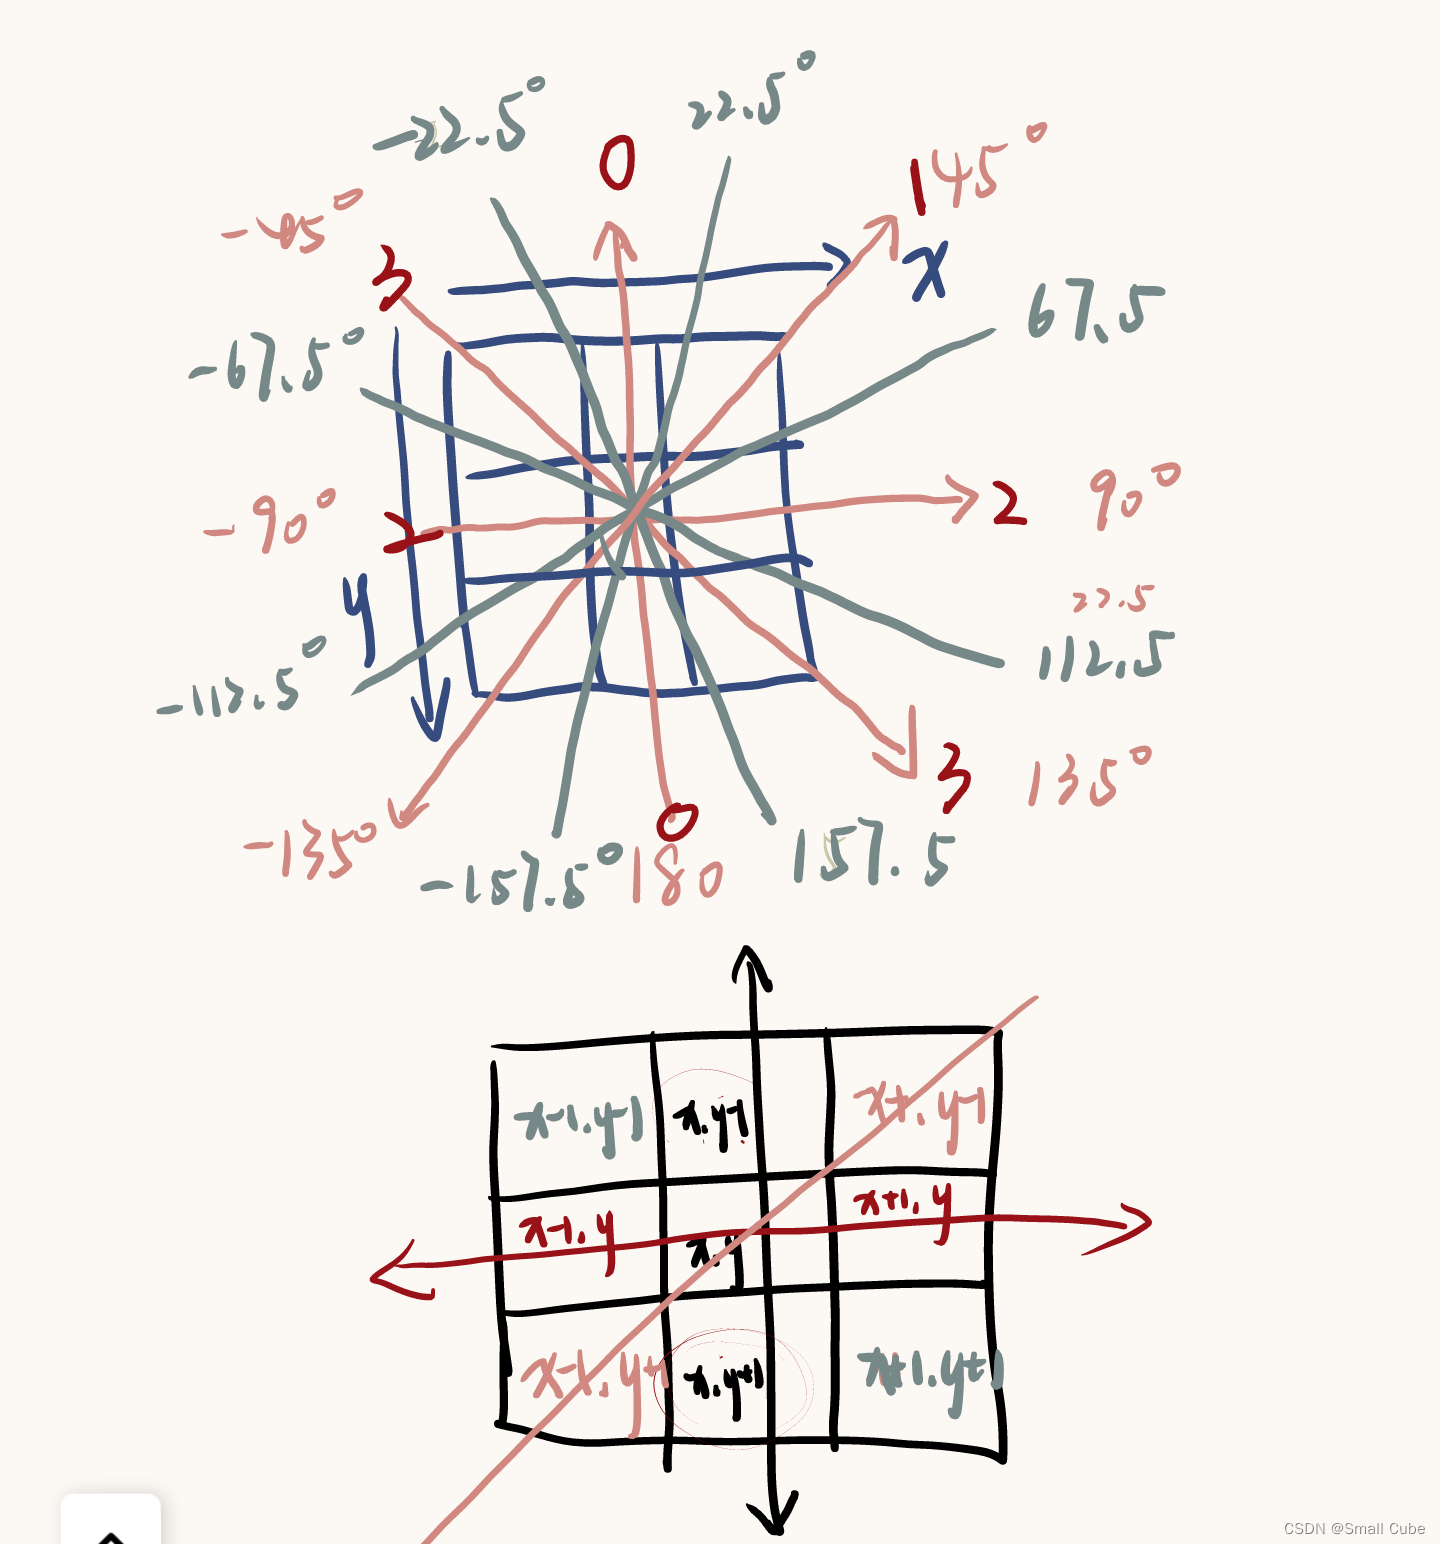 -22.5°
22.5°
0
1 45°
-45°
3
x
67.5
-67.5°
-90°
2
2 90°
y
22.5
112.5
-112.5°
3 135°
-135°
0
-157.5°
180
157.5
x-1,y-1
x,y-1
x+1,y-1
x-1,y
x,y
x+1,y
x-1,y+1
x,y+1
x+1,y+1
CSDN @Small Cube